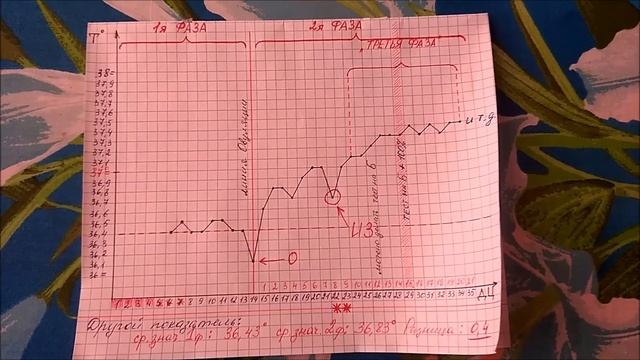 T°
1я ФАЗА
2я ФАЗА
"ТРЕТЬЯ ФАЗА"
38=
37,9
37,8
37,7
37,6
37,5
37,4
37,3
37,2
37,1
37=
36,9
36,8
36,7
36,6
36,5
36,4
36,3
36,2
36,1
36=
линия Овуляции
О
ИЗ
можно делать тест на Б
тест на Б + 100%
и т. д.
1 2 3 4 5 6 7 8 9 10 11 12 13 14 15 16 17 18 19 20 21
1 2 3 4 5 6 7 8 9 10 11 12 13 14 15 16 17 18 19 20 21 22 23 24 25 26 27 28 29 30 31 32 33 34 35 ДЦ
**
Другой показатель:
ср. знач. 1ф: 36,43° ср. знач. 2ф: 36,83° Разница: 0,4